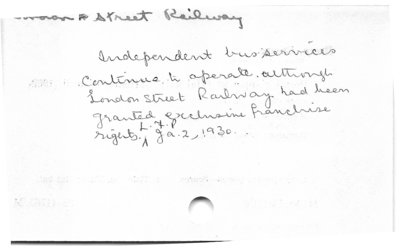 London Street Railway
Independent bus services
continue to operate although
London Street Railway had been
granted exclusive franchise
rights. L.F.P. Ja. 2, 1930.